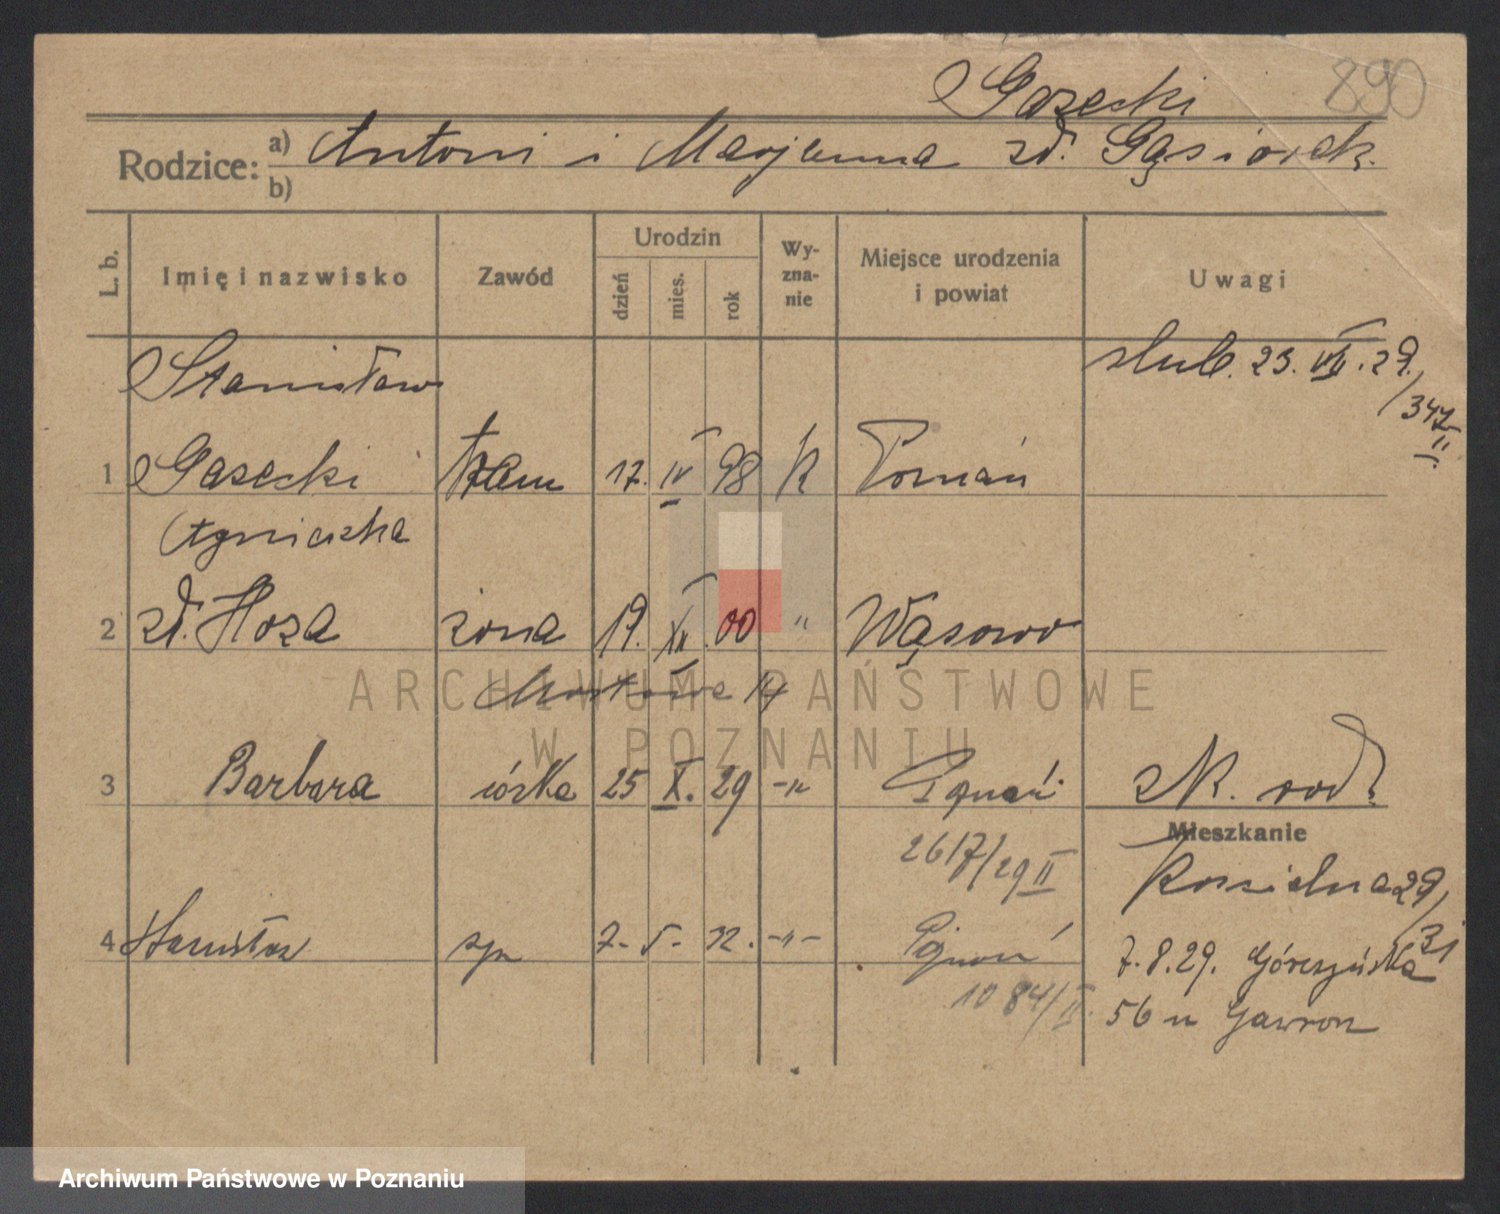 Gasecki 890
Rodzice: a) Antoni i Marjanna zd. Gąsiorek.
b)
L. b. Imię i nazwisko Zawód Urodzin dzień mies. rok Wyznanie Miejsce urodzenia i powiat Uwagi
Stanisław ślub. 23. VII. 29. /347 II.
1 Gasecki tram 17. IV 98 k Poznań
Agnieszka
2 zd. Hoza żona 19. XII 00 " Wąsowo
Mostowa 14
3 Barbara córka 25 X. 29 -"- Poznań
Mieszkanie
2617/29 II
Kościelna 29/31
4 Stanisław syn 7- 5- 32. -"- Poznań
7.8.29. Górczyńska
1084/II.
56 u Gawron
ARCHIWUM PAŃSTWOWE
W POZNANIU
Archiwum Państwowe w Poznaniu